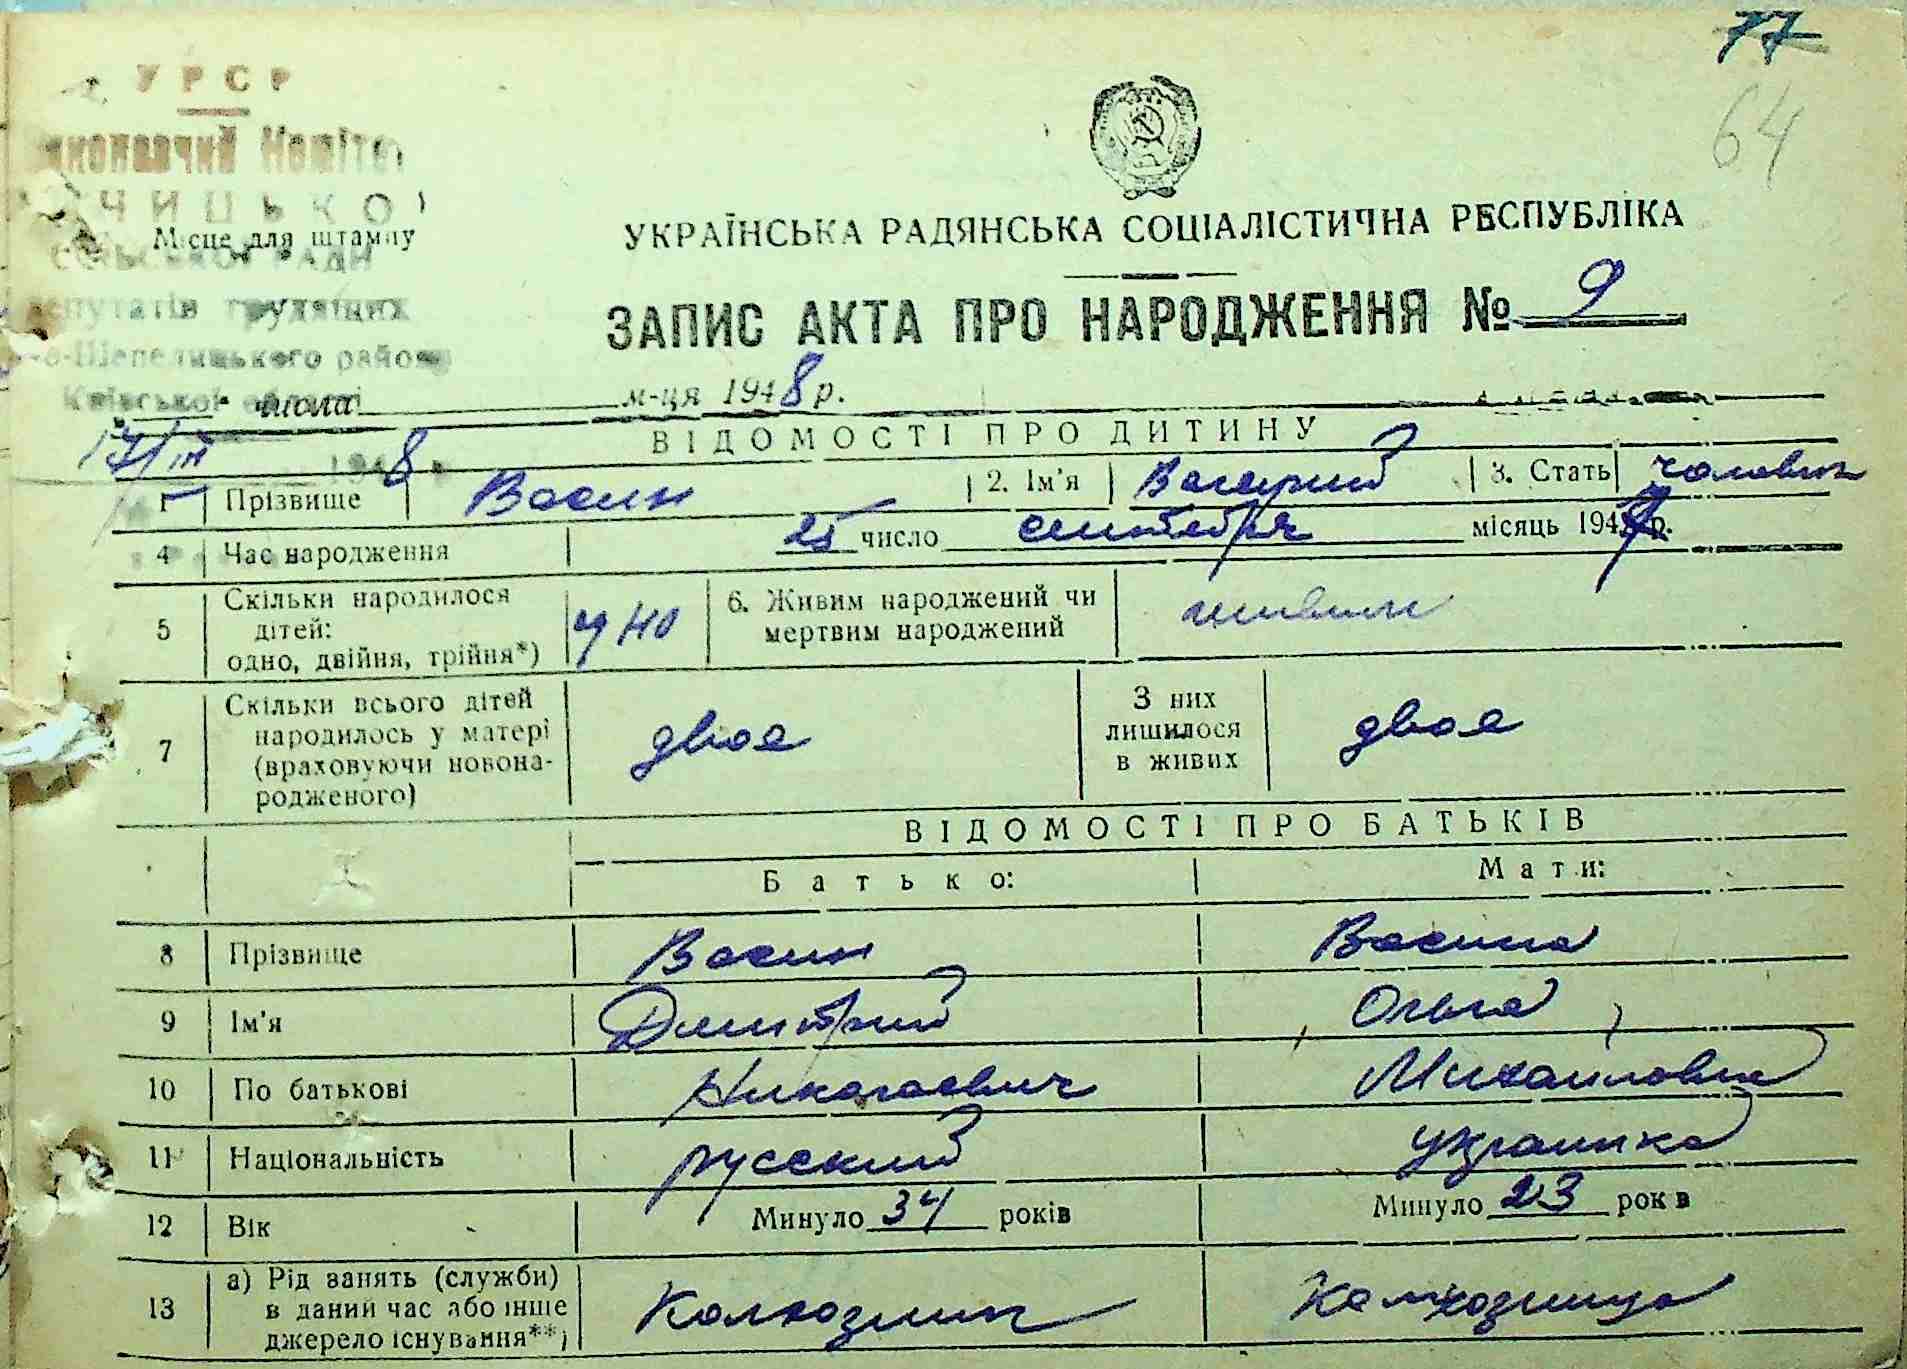 77
64
УРСР
Виконавчий Комітет
ЧИЦЬКОЇ
Місце для штампу
СІЛЬСЬКОЇ РАДИ
депутатів трудящих
-о-Шепелицького району
Київської області
УКРАЇНСЬКА РАДЯНСЬКА СОЦІАЛІСТИЧНА РЕСПУБЛІКА
ЗАПИС АКТА ПРО НАРОДЖЕННЯ № 9
числа м-ця 1948 р.
17/III 1948 р
ВІДОМОСТІ ПРО ДИТИНУ
1 Прізвище Васин 2. Ім'я Валерий 3. Стать чоловік
4 Час народження 25 число сентября місяць 1947 р.
5 Скільки народилося дітей: одно, двійня, трійня*) 6. Живим народжений чи мертвим народжений живим
7 Скільки всього дітей народилось у матері (враховуючи новонародженого) двоя З них лишилося в живих двоя
ВІДОМОСТІ ПРО БАТЬКІВ
Батько: Мати:
8 Прізвище Васин Васина
9 Ім'я Дмитрий Ольга
10 По батькові Николаевич Михайловна
11 Національність русский украинка
12 Вік Минуло 34 років Минуло 23 років
13 а) Рід занять (служби) в даний час або інше джерело існування**) Колхозник Колхозница